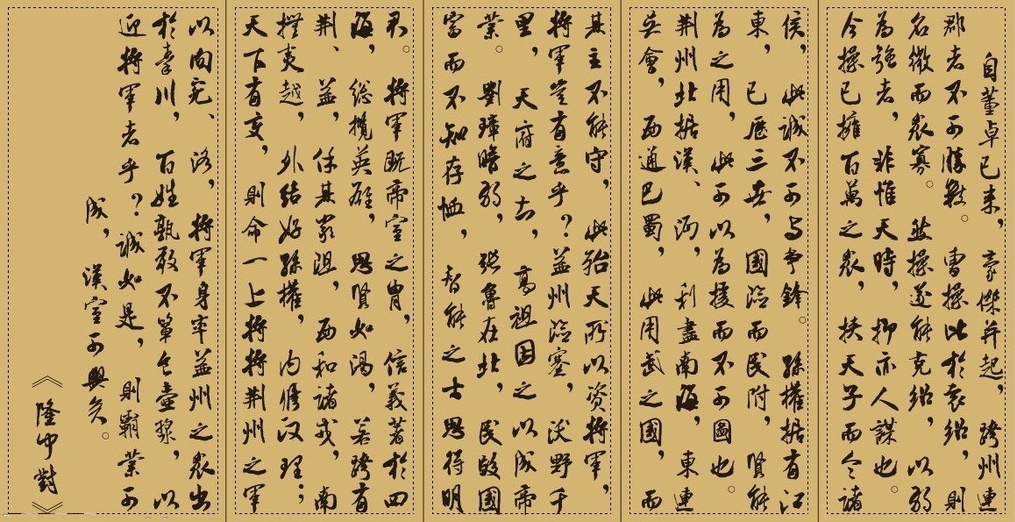 自董卓已來,豪傑并起,跨州連
郡者不可勝數。曹操比於袁紹,則
名微而衆寡。然操遂能克紹,以弱
為強者,非惟天時,抑亦人謀也。
今操已擁百萬之衆,挾天子而令諸
侯,此誠不可与爭鋒。孫權據有江
東,已歷三世,國險而民附,賢能
為之用,此可以為援而不可圖也。
荆州北據漢、沔,利盡南海,東連
吳會,西通巴蜀,此用武之國,而
其主不能守,此殆天所以资將軍,
將軍豈有意乎?益州險塞,沃野千
里,天府之土,高祖因之以成帝
業。劉璋暗弱,張魯在北,民殷國
富而不知存恤,智能之士思得明
君。將軍既帝室之胄,信義著於四
海,總攬英雄,思賢如渴,若跨有
荆、益,保其岩阻,西和諸戎,南
撫夷越,外結好孫權,内修政理;
天下有变,則命一上將將荆州之軍
以向宛、洛,將軍身率益州之衆出
於秦川,百姓孰敢不簞食壺漿,以
迎將軍者乎?誠如是,則霸業可
成,漢室可興矣。
《隆中對》